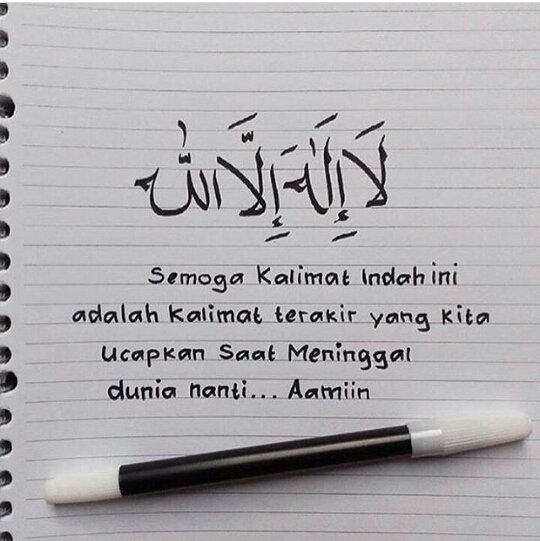 لَا إِلٰهَ إِلَّا اللّٰهُ
Semoga Kalimat Indah ini
adalah Kalimat terakir yang Kita
ucapkan Saat Meninggal
dunia nanti... Aamiin